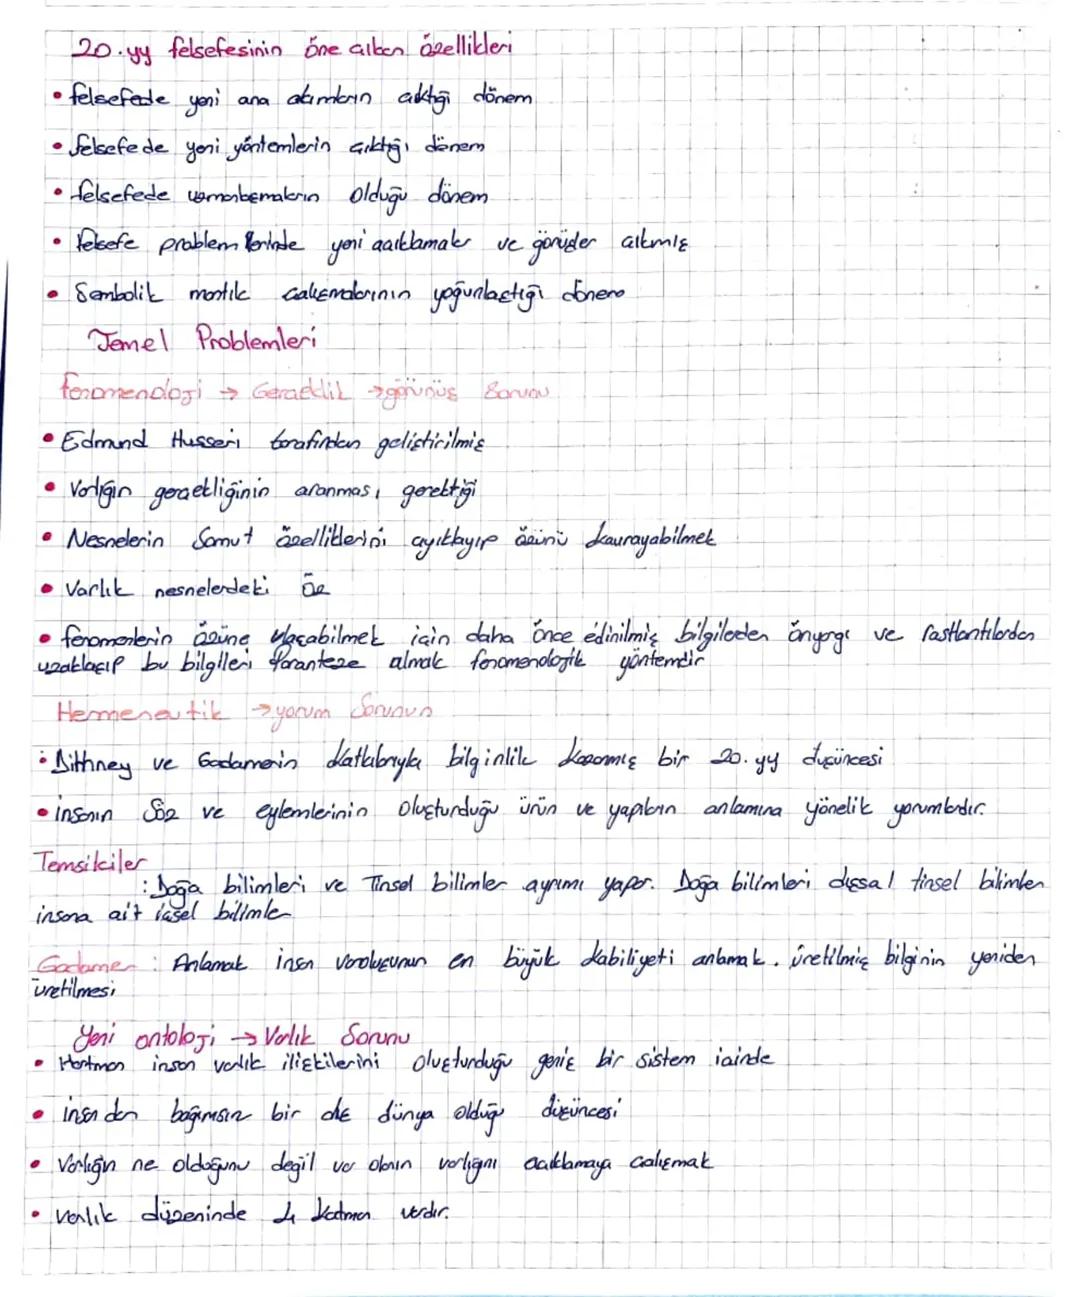 20.yy felsefesinin öne çıkan özellikleri
• felsefede yeni ana akımların çıktığı dönem
• felsefede yeni yöntemlerin çıktığı dönem
• felsefede uzmanlaşmaların olduğu dönem
• felsefe problemlerinde yeni açıklamalar ve görüşler çıkmış
• Sembolik mantık çalışmalarının yoğunlaştığı dönem
Temel Problemleri
fenomenoloji → Gerçeklik → görünüş Sorunu
• Edmund Husserl tarafından geliştirilmiş
• Varlığın gerçekliğinin aranması gerektiği
• Nesnelerin Somut özelliklerini ayıklayıp özünü kavrayabilmek
• Varlık nesnelerdeki öz
• fenomenlerin özüne ulaşabilmek için daha önce edinilmiş bilgilerden önyargı ve rastlantılardan
uzaklaşıp bu bilgileri paranteze almak fenomenolojik yöntemdir
Hermeneutik → yorum Sorunun
• Dithney ve Gadamerin katkılarıyla bilginlik kazanmış bir 20.yy düşüncesi
• insanın Söz ve eylemlerinin oluşturduğu ürün ve yapıların anlamına yönelik yorumlardır.
Temsilciler
: Doğa bilimleri ve Tinsel bilimler ayrımı yapar. Doğa bilimleri dışsal tinsel bilimler
insana ait içsel bilimler
Gadamer : Anlamak insan varoluşunun en büyük kabiliyeti anlamak. üretilmiş bilginin yeniden
üretilmesi
Yeni ontoloji → Varlık Sorunu
• Hartman insan varlık ilişkilerini oluşturduğu geniş bir sistem içinde
• insandan bağımsız bir dış dünya olduğu düşüncesi
• Varlığın ne olduğunu değil var olanın varlığını açıklamaya çalışmak
• varlık düzeninde 4 katman vardır.